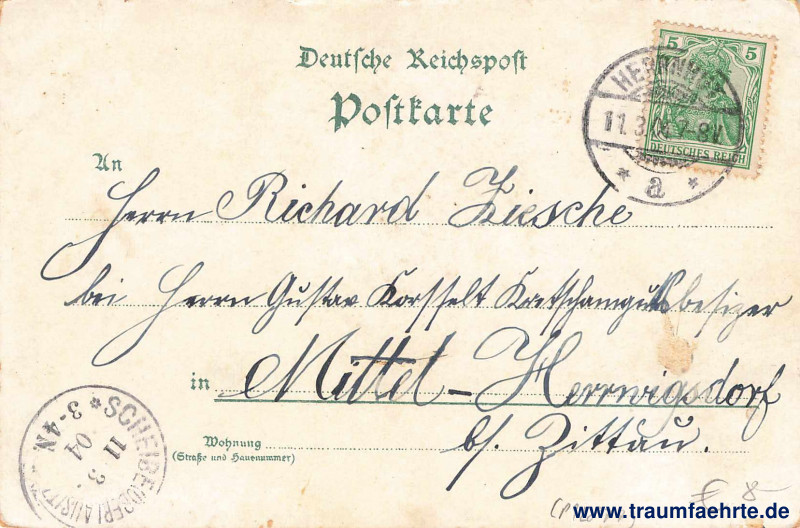 Deutsche Reichspost
Postkarte
5 5
DEUTSCHES REICH
HERRNHUT
11.3.04 7-8V.
* a *
An
Herrn Richard Ziesche
bei Herrn Gustav Korsselt Kretschamgutsbesizer
in Mittel-Herrwigsdorf
b/. Zittau.
Wohnung
(Straße und Hausnummer)
SCHEIBE (OBERLAUSITZ)
11 3.
04
* 3-4N.
€ 8-
www.traumfaehrte.de